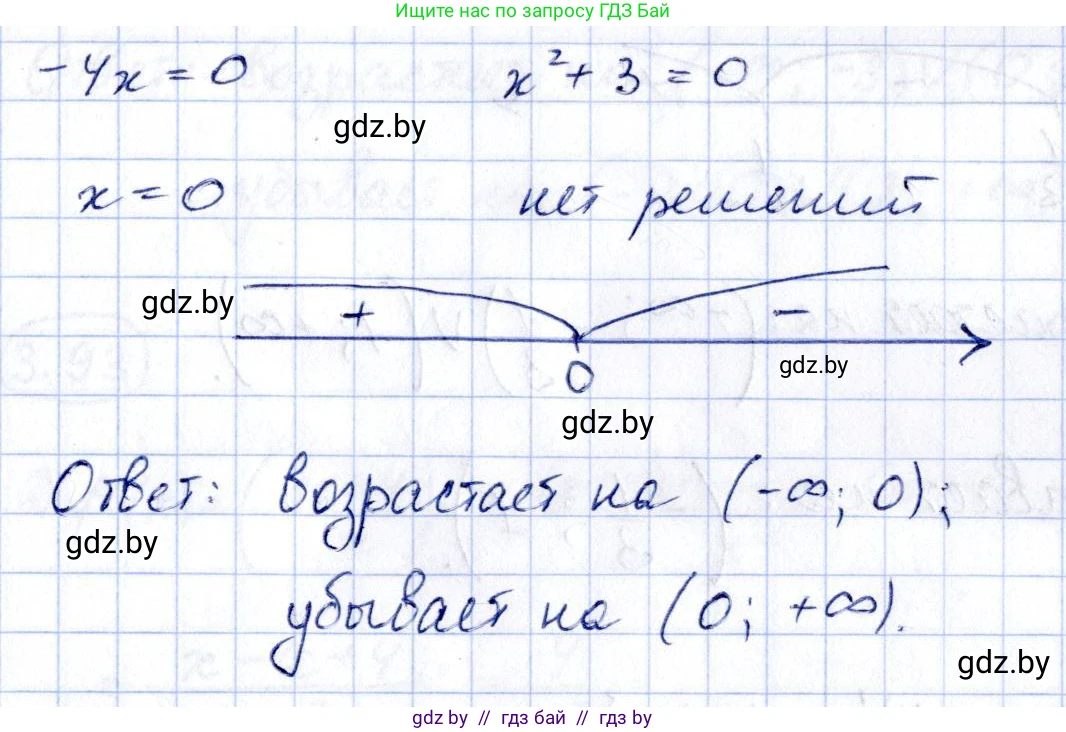 Ищите нас по запросу ГДЗ Бай
-4x = 0    x² + 3 = 0
gdz.by
x = 0    нет решений
gdz.by
+    -
gdz.by
0
gdz.by
Ответ: возрастает на (-∞; 0);
gdz.by
убывает на (0; +∞).
gdz.by
gdz by // гдз бай // гдз by